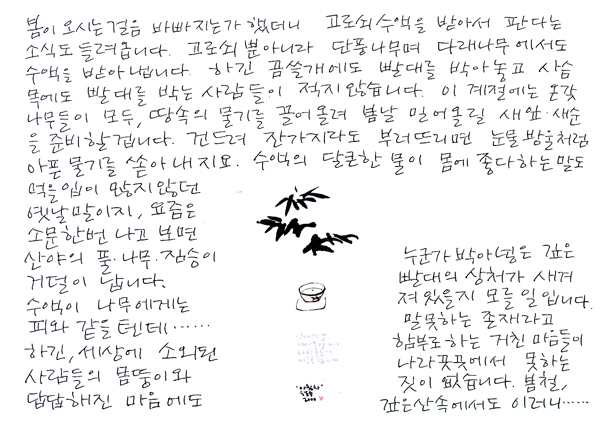 봄이 오시는 걸음 바빠지는가 했더니 고로쇠 수액을 받아서 판다는
소식도 들려옵니다. 고로쇠 뿐아니라 단풍나무며 다래나무에서도
수액을 받아 냅니다. 하긴 곰쓸개에도 빨대를 박아 놓고 사슴
목에도 빨대를 박는 사람들이 적지않습니다. 이 계절에는 온갖
나무들이 모두, 땅속의 물기를 끌어올려 봄날 밀어올릴 새잎·새순
을 준비할 겁니다. 건드려 잔가지라도 부러뜨리면 눈물 방울처럼
아픈 물기를 쏟아 내지요. 수액의 달큰한 물이 몸에 좋다하는 말도
먹을 입이 많지 않던
옛날 말이지, 요즘은
소문 한번 나고 보면
산야의 풀·나무·짐승이
거덜이 납니다.
수액이 나무에게는
피와 같을 텐데……
하긴, 세상에 소외된
사람들의 몸뚱이와
답답해진 마음에도
누군가 박아넣은 깊은
빨대의 상처가 새겨
져 있을지 모를 일입니다.
말못하는 존재라고
함부로 하는 거친 마음들이
나라 곳곳에서 못하는
짓이 없습니다. 봄철,
깊은 산속에서도 이러니……
2000